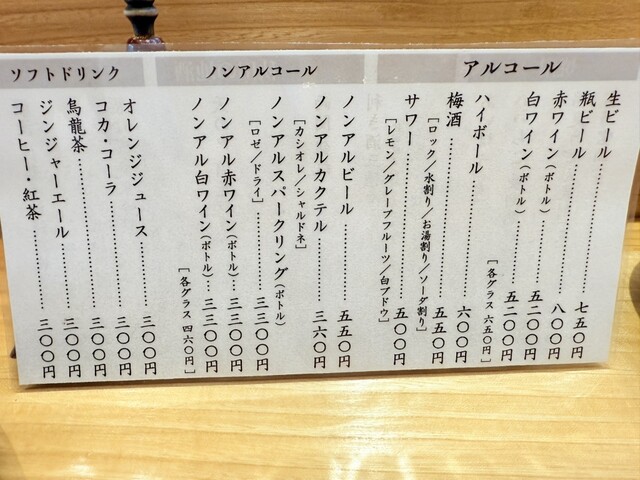 アルコール
生ビール……七五〇円
瓶ビール……八〇〇円
赤ワイン(ボトル)……五二〇〇円
白ワイン(ボトル)……五二〇〇円
[各グラス 六五〇円]
ハイボール……六〇〇円
梅酒……五五〇円
[ロック/水割り/お湯割り/ソーダ割り]
サワー……五〇〇円
[レモン/グレープフルーツ/白ブドウ]
ノンアルコール
ノンアルビール……五五〇円
ノンアルカクテル……三六〇円
[カシオレ/シャルドネ]
ノンアルスパークリング(ボトル)
[ロゼ/ドライ]……三三〇〇円
ノンアル赤ワイン(ボトル)……三三〇〇円
ノンアル白ワイン(ボトル)……三三〇〇円
[各グラス 四六〇円]
ソフトドリンク
オレンジジュース……三〇〇円
コカ・コーラ……三〇〇円
烏龍茶……三〇〇円
ジンジャーエール……三〇〇円
コーヒー・紅茶……三〇〇円